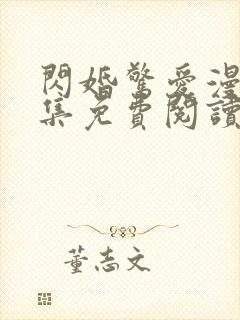 閃婚驚愛漫
集免費閱讀
董志文